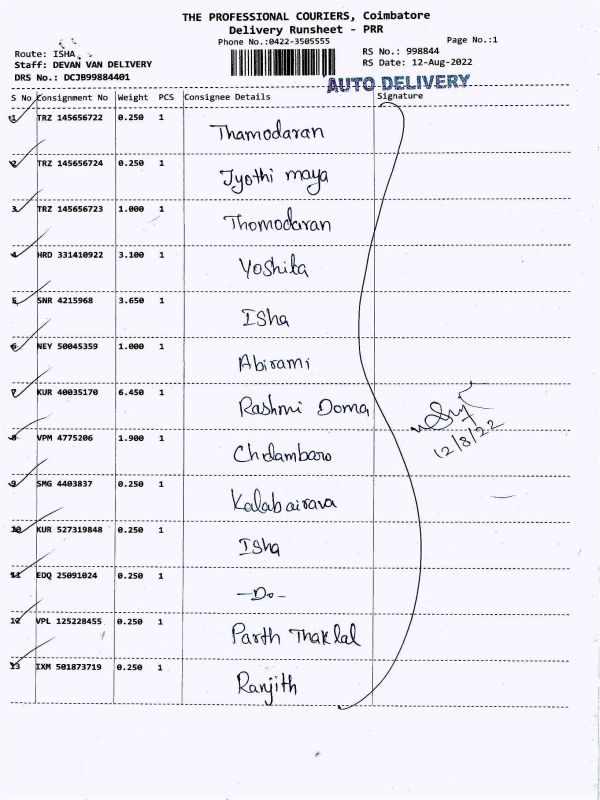 THE PROFESSIONAL COURIERS, Coimbatore
Delivery Runsheet - PRR
Phone No.:0422-3505555
Page No.:1
Route: ISHA
Staff: DEVAN VAN DELIVERY
DRS No.: DCJB99884401
RS No.: 998844
RS Date: 12-Aug-2022
AUTO DELIVERY
S No Consignment No Weight PCS Consignee Details Signature
1 TRZ 145656722 0.250 1 Thamodaran
2 TRZ 145656724 0.250 1 Jyothi maya
3 TRZ 145656723 1.000 1 Thomodaran
4 HRD 331410922 3.100 1 Yoshika
5 SNR 4215968 3.650 1 ISha
6 NEY 50045359 1.000 1 Abirami
7 KUR 40035170 6.450 1 Rashmi Doma
8 VPM 4775206 1.900 1 Chdambaro
9 SMG 4403837 0.250 1 Kalabairava
10 KUR 527319848 0.250 1 ISha
11 EDQ 25091024 0.250 1 -Do-
12 VPL 125228455 0.250 1 Parth Thaklal
13 IXM 501873719 0.250 1 Ranjith
12/8/22